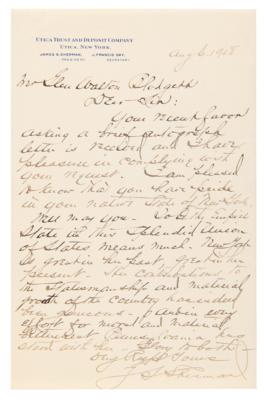 UTICA TRUST AND DEPOSIT COMPANY
UTICA, NEW YORK.
JAMES S. SHERMAN, J. FRANCIS DAY,
PRESIDENT. SECRETARY.
Aug 6, 1908
Mr Glen Walton Blodgett
Dear Sir:
Your recent favor
asking a brief autograph
letter is received and I have
pleasure in complying with
your request. I am pleased
to know that you have pride
in your native State of New York.
Well may you. To be the Empire
State in this splendid union
of States means much. New York
is great in her past, great in her
present. Her contributions to
the Statesmanship and material
growth of the country has indeed
been generous. In every
effort for moral and material
has
stood
Very Truly Yours
J. S. Sherman